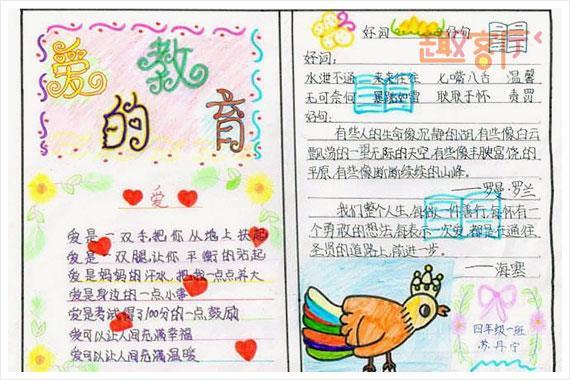 爱的教育
爱
爱是一双手,把你从地上扶起
爱是一双腿,让你平衡的站起
爱是妈妈的汗水,把我一点点养大
爱是身边的一点小事
爱是考试得了100分的一点鼓励
爱可以让人间充满幸福
爱可以让人间充满温暖
好词 好句
趣客
好词:
水泄不通 来来往往 七嘴八舌 温馨
无可奈何 暴跳如雷 耿耿于怀 责罚
好句:
有些人的生命像沉静的湖,有些像白云
飘荡的一望无际的天空,有些像丰腴富饶的
平原,有些像断断续续的山峰。
——罗曼·罗兰
我们整个人生,每做一件善行,每怀有一
个勇敢的想法,每表示一次爱,都是在通往
圣贤的道路上,前进一步。
——海塞
四年级一班
苏丹宁